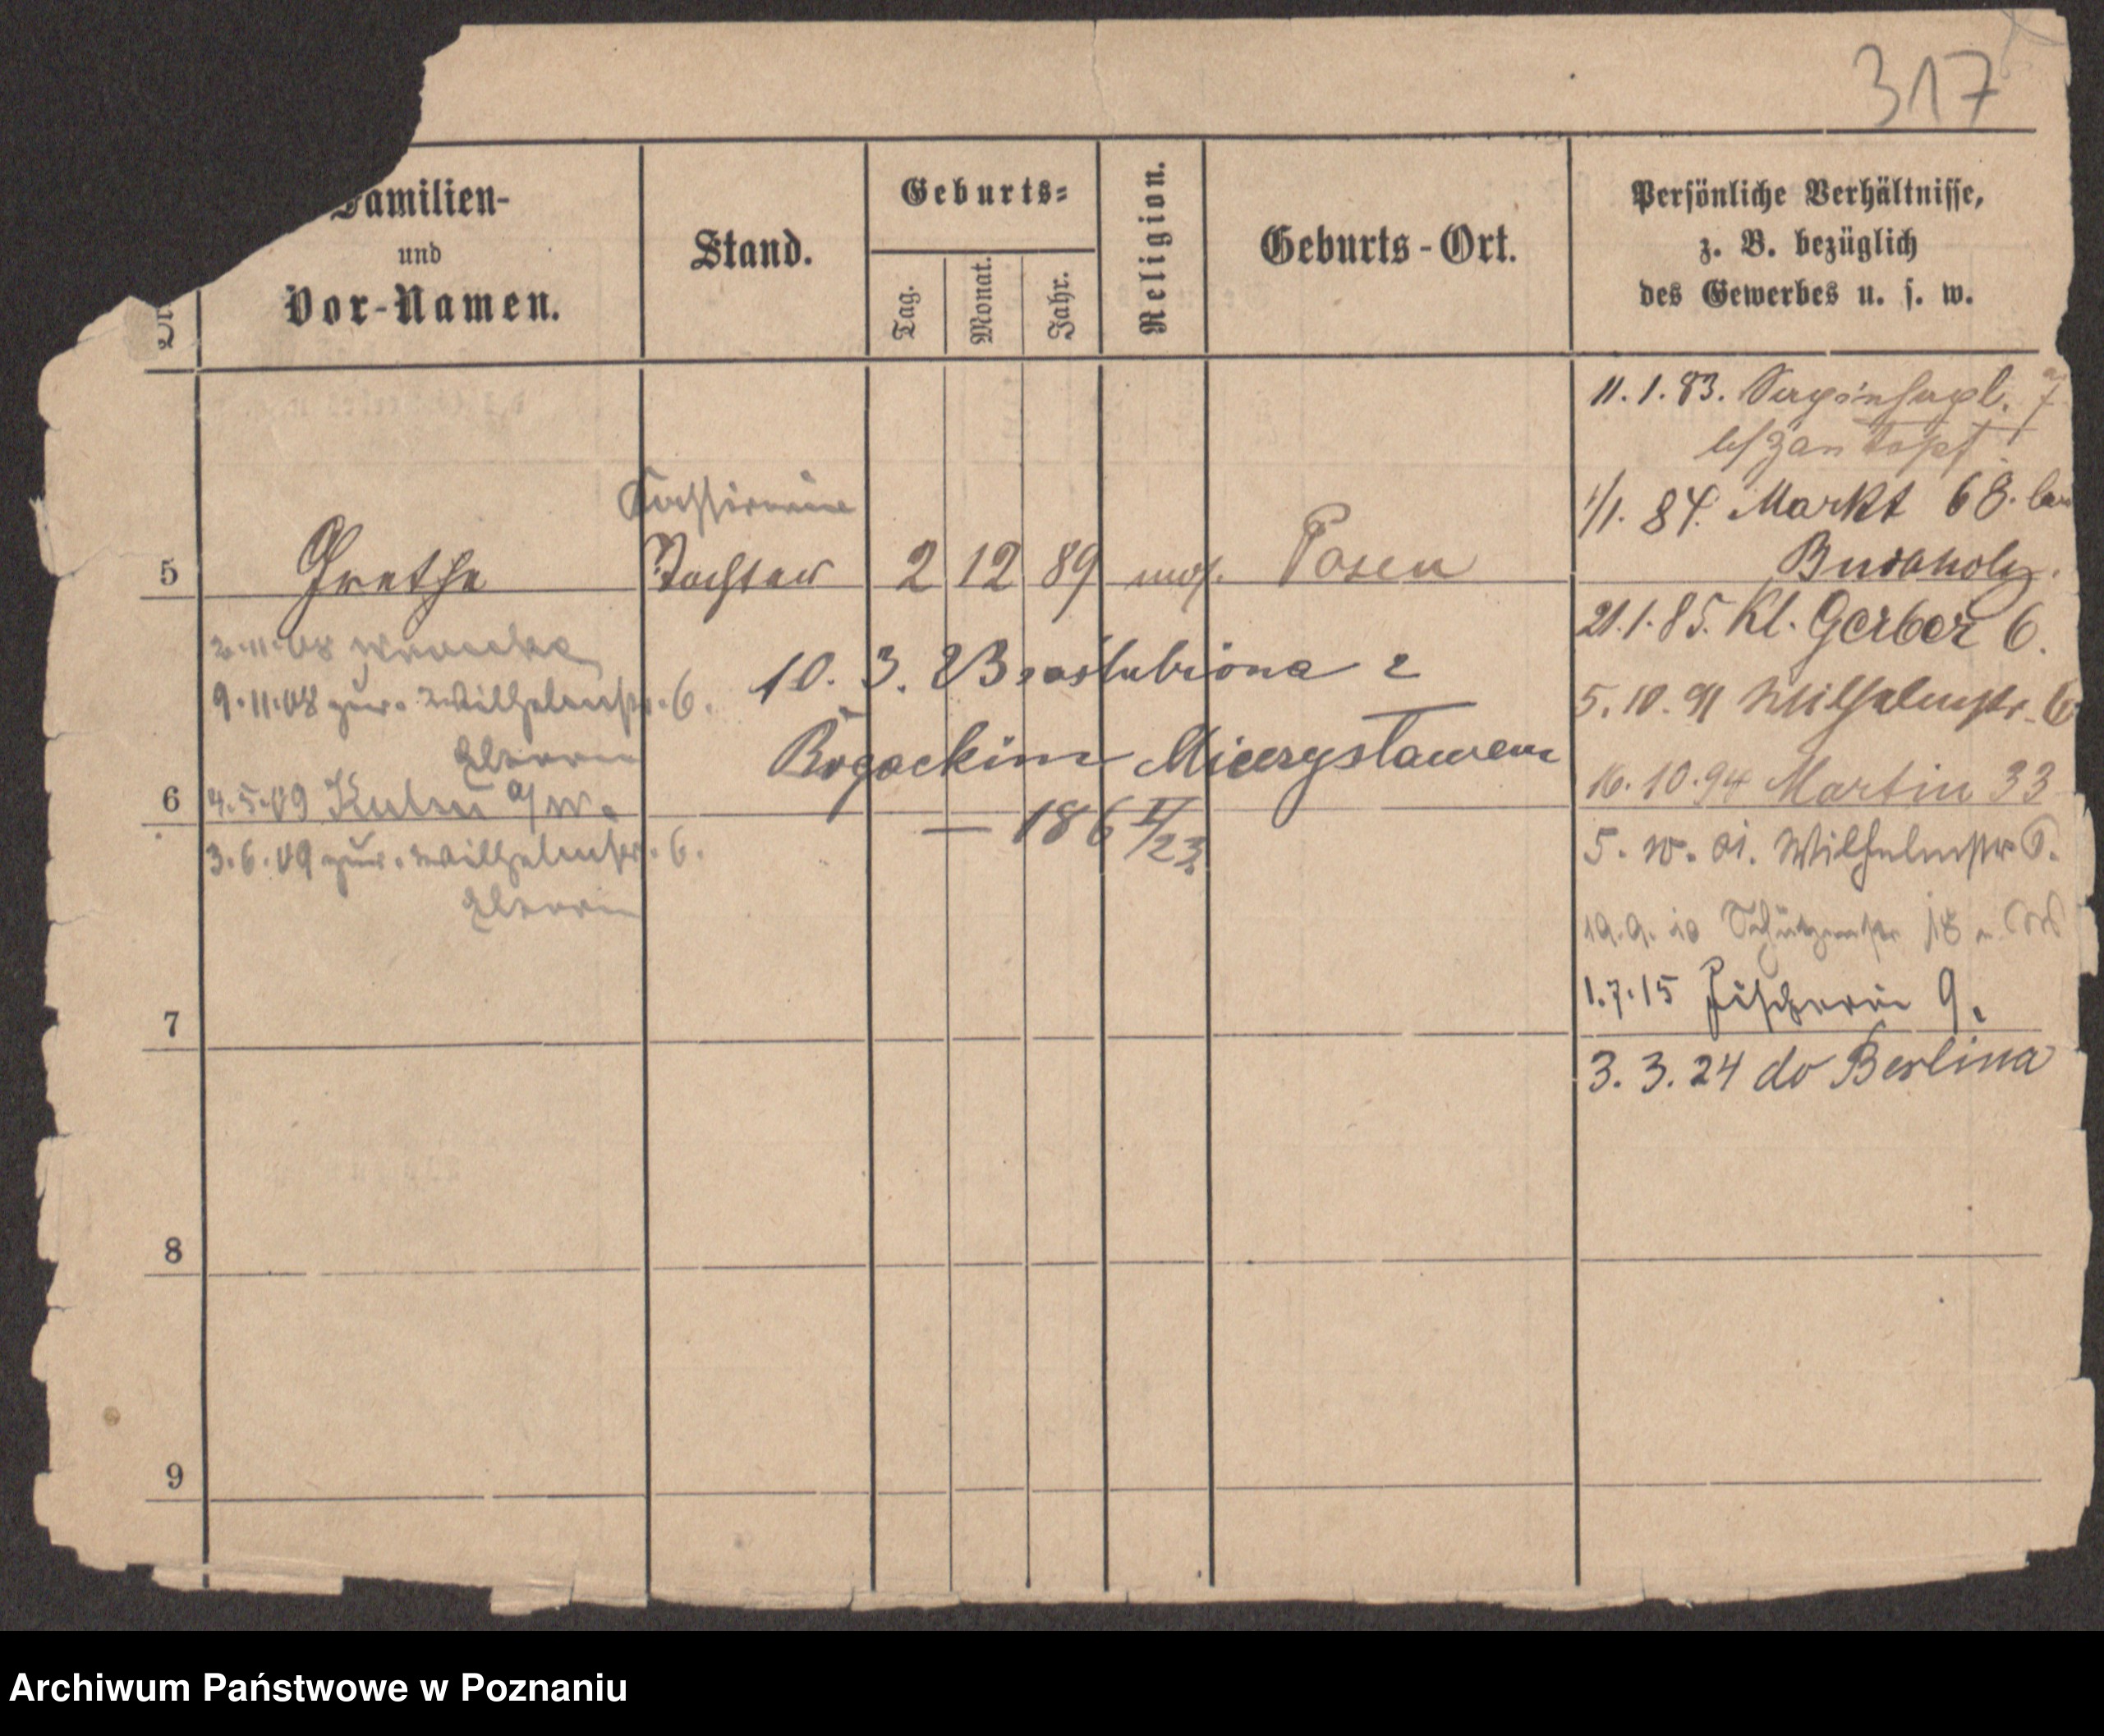 317
Familien-
und
Vor-Namen.
Stand.
Geburts-
Tag.
Monat.
Jahr.
Religion.
Geburts-Ort.
Persönliche Verhältnisse,
z. B. bezüglich
des Gewerbes u. s. w.
11. 1. 83.
1/1. 84. Markt 68.
5 Grethe Tochter 2 12 89 mos. Posen
21. 1. 85. Kl. Gerber 6.
2.11.08
9.11.08 zur. Wilhelmstr. 6.
Eltern
10. 3. 23
5. 10. 91 Wilhelmstr. 6
Bogackim Mieczysławem
6 4.5.09 Kulm a/W.
16. 10. 94 Martin 33
— 186 II/23
3.6.09 zur. Wilhelmstr. 6.
Eltern
5. 10. 01. Wilhelmstr 6.
19. 9. 10 Schützenstr 18
7
1.7.15 Fischerei 9.
3. 3. 24 do Berlina
8
9
Archiwum Państwowe w Poznaniu